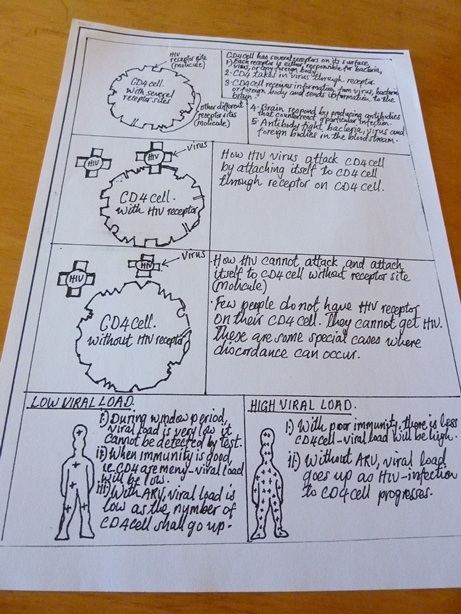 HIV
receptor site
(molecule)
CD4 cell
with several
receptor sites
Other different
receptor sites
(molecule)
CD4 cell has several receptors on its surface.
1) Each receptor is either responsible for bacteria,
virus, or any foreign body.
2. CD4 takes in virus through receptor.
3. CD4 cell receives information from virus, bacteria
or foreign body and sends information to the
brain.
4. Brain respond by producing antibodies
that counteract a particular infection.
5. Antibody fight bacteria, virus and
foreign bodies in the blood stream.
HIV
HIV
Virus
CD4 cell.
with HIV receptor
How HIV virus attack CD4 cell
by attaching itself to CD4 cell
through receptor on CD4 cell.
HIV
HIV
Virus
CD4 cell.
without HIV receptor
How HIV cannot attack and attach
itself to CD4 cell without receptor site
(molicule)
Few people do not have HIV receptor
on their CD4 cell. They cannot get HIV.
These are some special cases where
discordance can occur.
LOW VIRAL LOAD.
i) During window period,
viral load is very low it
cannot be detected by test.
ii) When immunity is good,
ie CD4 are meny-viral load
will be low.
iii) With ARV, viral load is
low as the nymber of
CD4 cell shall go up.
HIGH VIRAL LOAD.
i) With poor immunity, there is less
CD4 cell-viral load will be high.
ii) Without ARV, viral load
goes up as HIV-infection
to CD4 cell progresses.